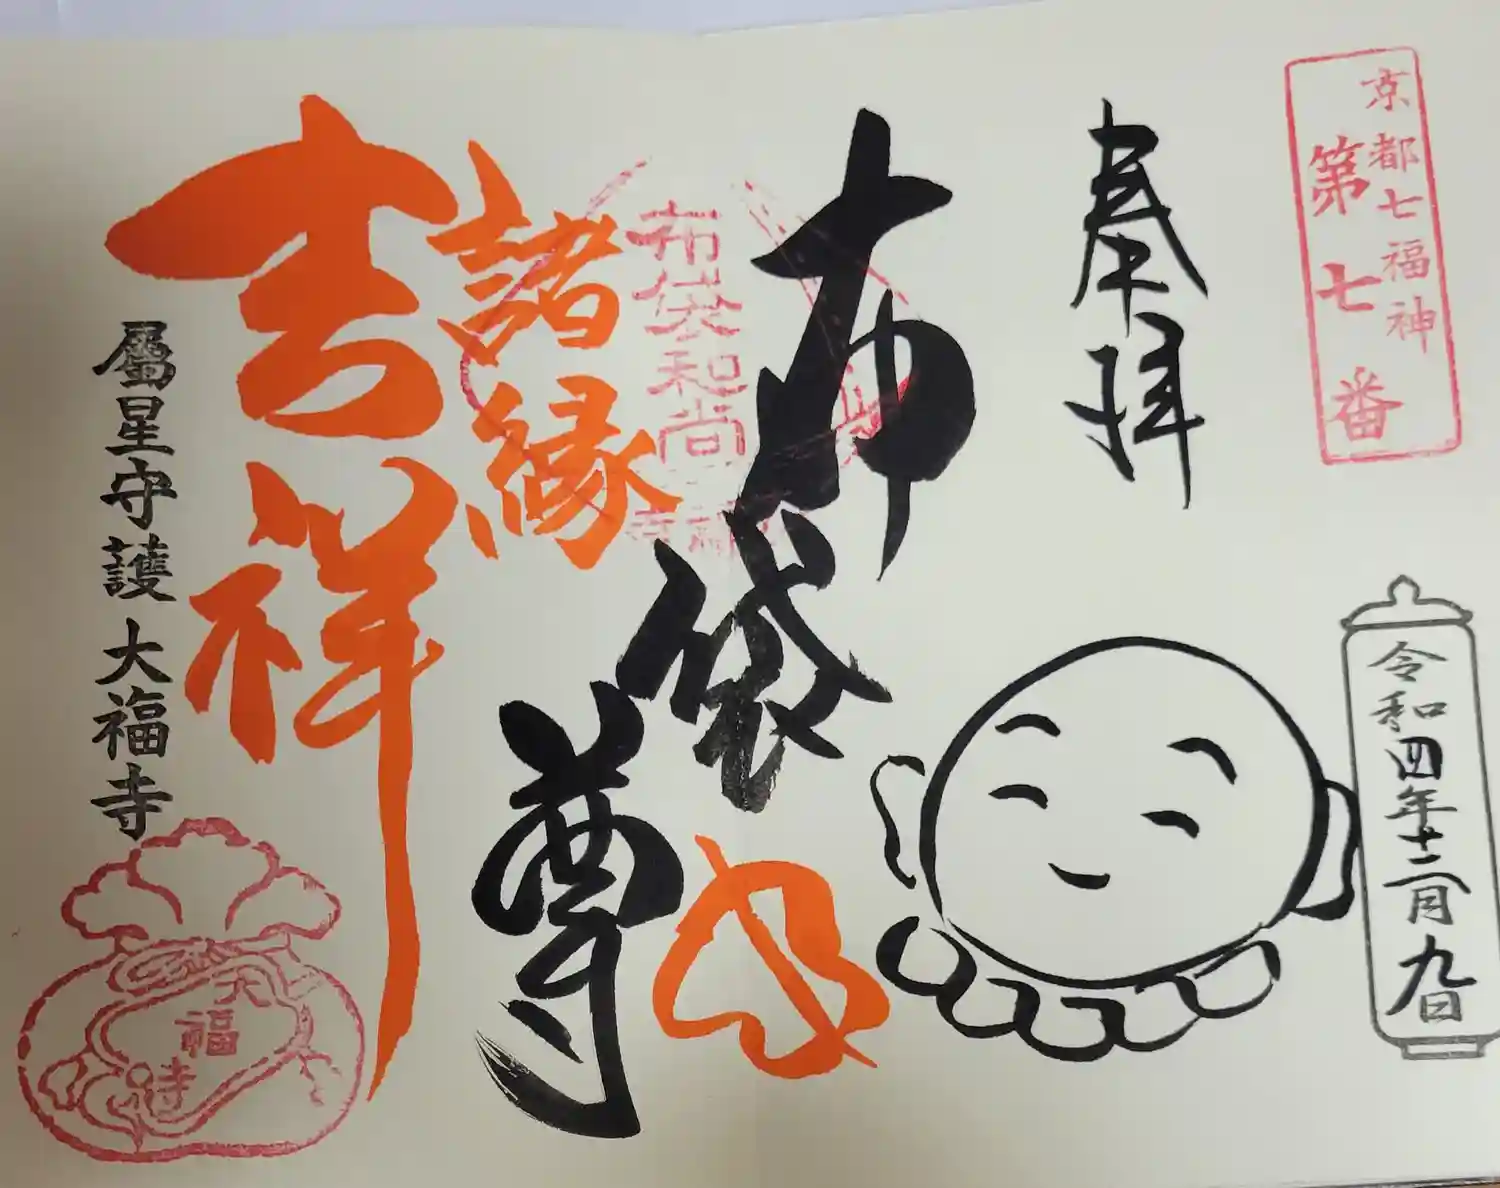 京都七福神
第七番
奉拝
令和四年十二月九日
布袋尊
布袋和尚
諸縁
吉祥
屬星守護 大福寺
大福寺